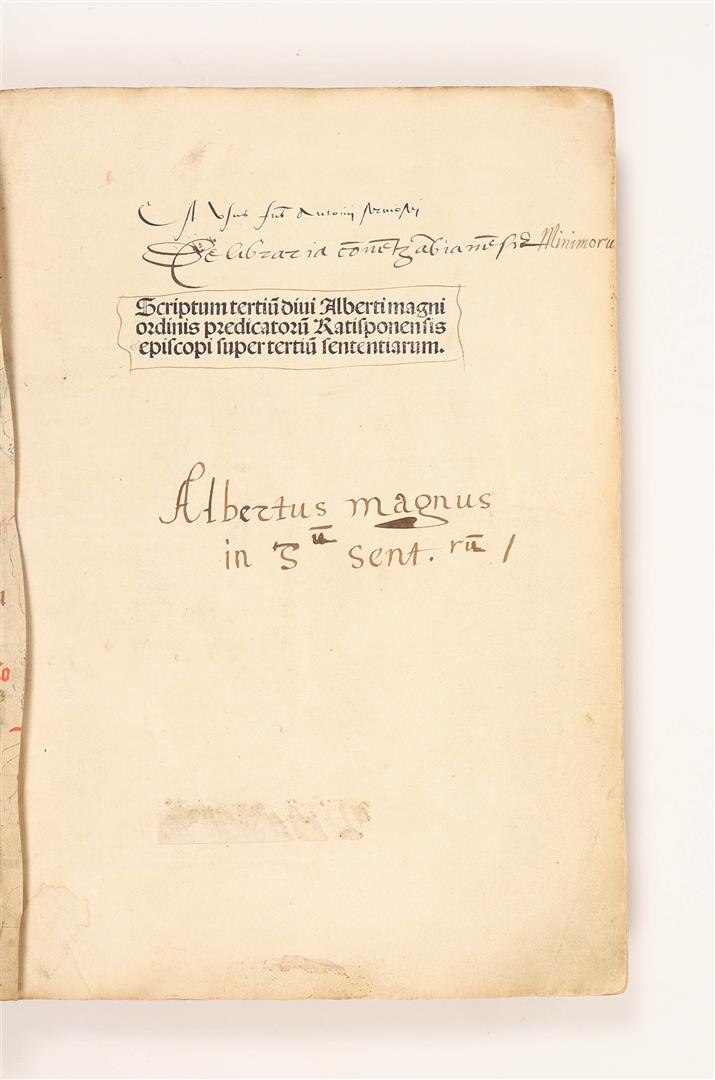 A Usus fris Antonij
De libraria Minimoru
Scriptum tertiū diui Alberti magni
ordinis predicatorū Ratisponensis
episcopi super tertiū sententiarum.
Albertus magnus
in 3ū sent. rū /